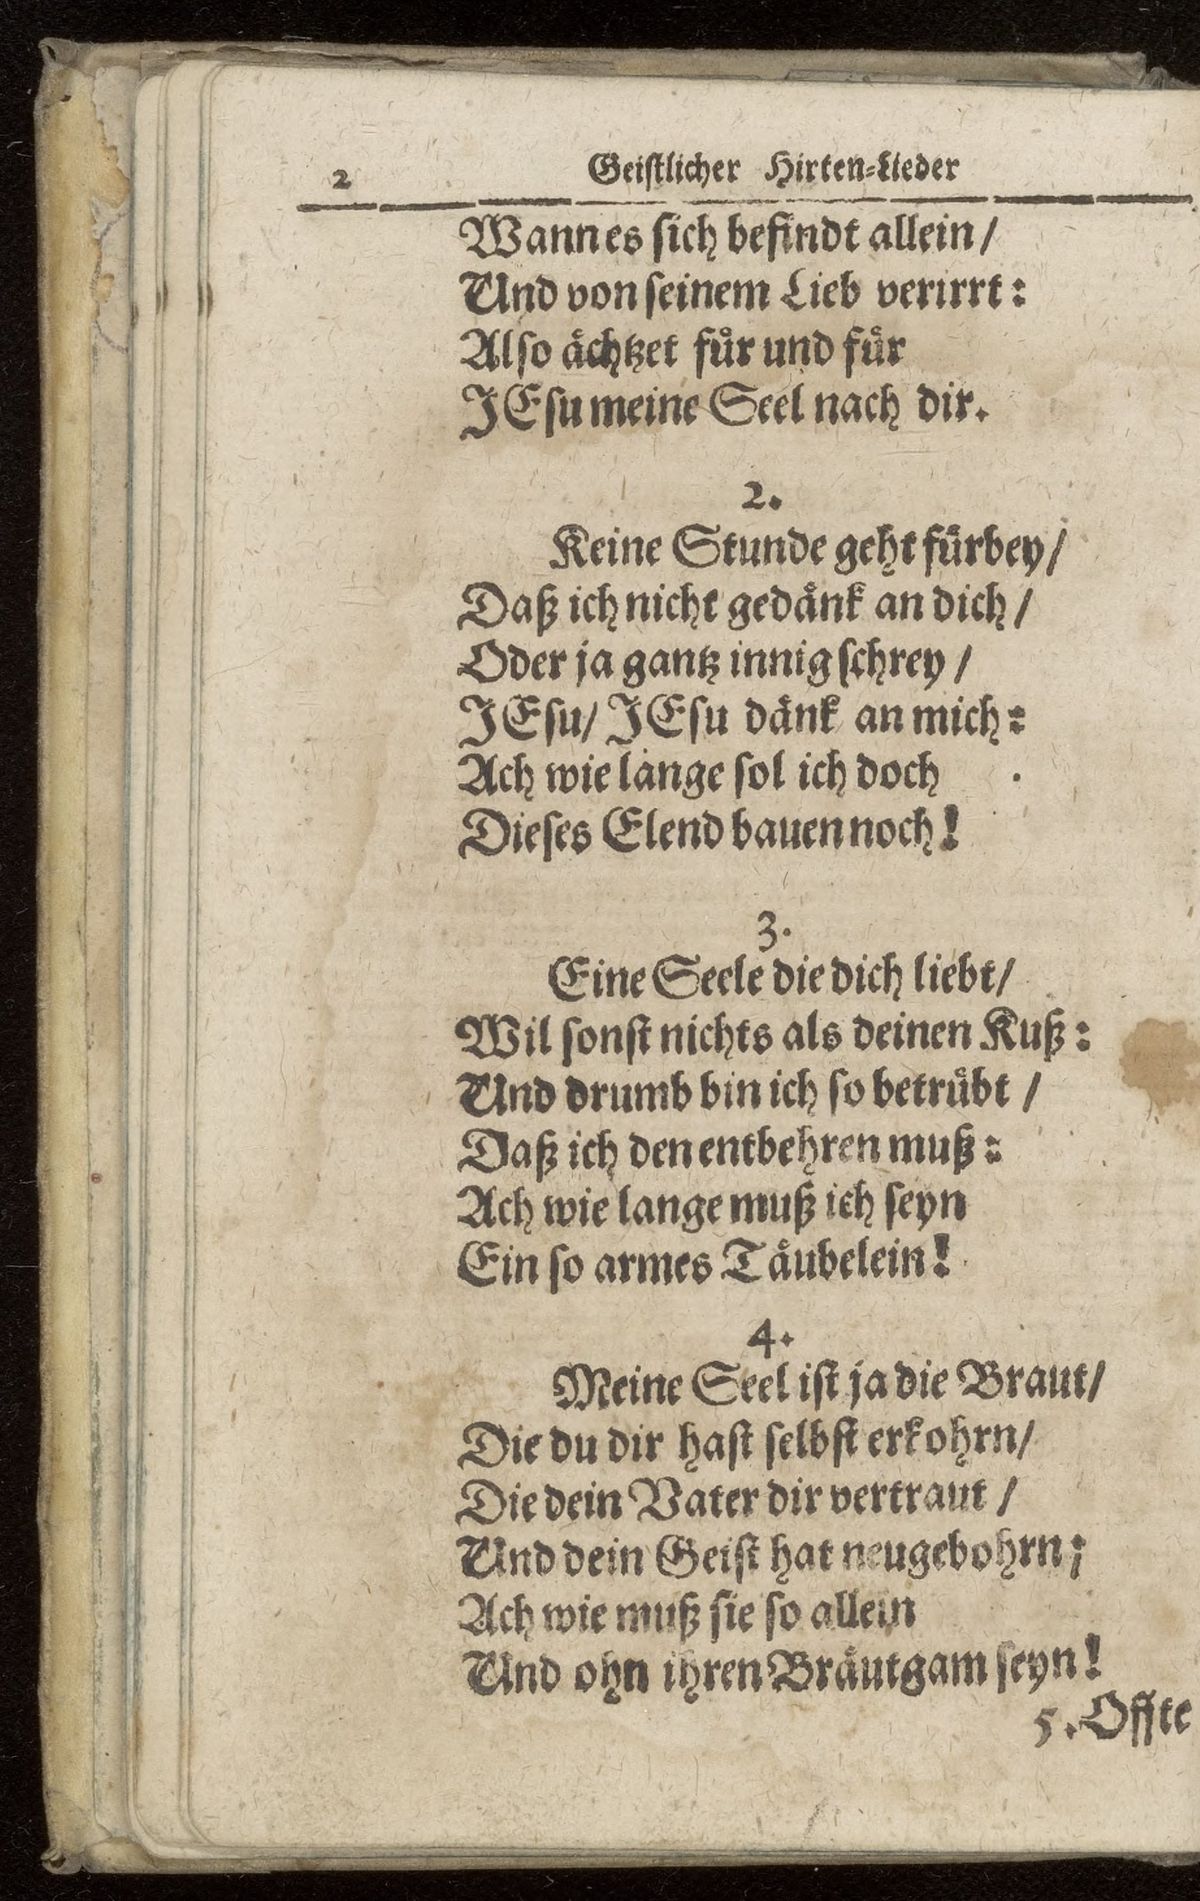 2 Geiſtlicher Hirten-Lieder
Wann es ſich befindt allein/
Und von ſeinem Lieb verirrt:
Alſo aͤchtzet fuͤr und fuͤr
JEſu meine Seel nach dir.
2.
Keine Stunde geht fuͤrbey/
Daß ich nicht gedaͤnk an dich/
Oder ja gantz innig ſchrey/
JEſu/ JEſu daͤnk an mich:
Ach wie lange ſol ich doch
Dieſes Elend bauen noch!
3.
Eine Seele die dich liebt/
Wil ſonſt nichts als deinen Kuß:
Und drumb bin ich ſo betruͤbt/
Daß ich den entbehren muß:
Ach wie lange muß ich ſeyn
Ein ſo armes Taͤubelein!
4.
Meine Seel iſt ja die Braut/
Die du dir haſt ſelbſt erkohrn/
Die dein Vater dir vertraut/
Und dein Geiſt hat neugebohrn;
Ach wie muß ſie ſo allein
Und ohn ihren Braͤutgam ſeyn!
5. Offte